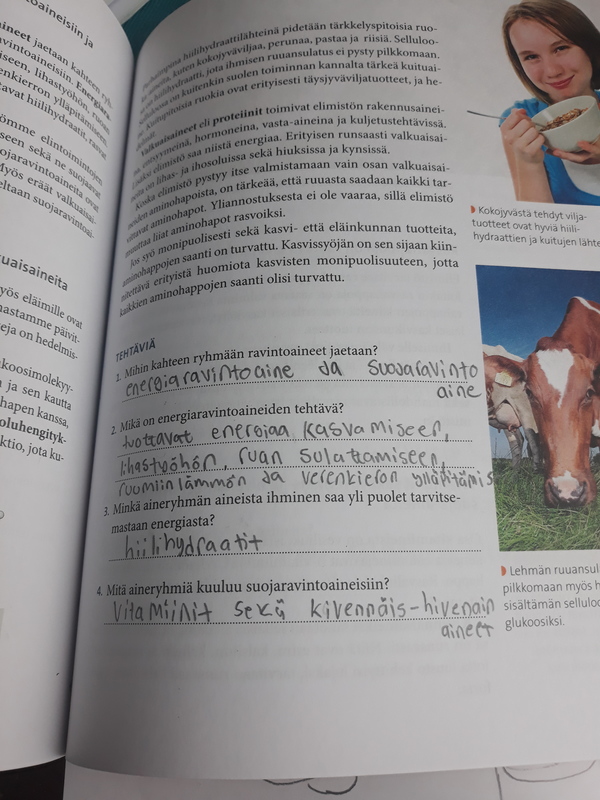 toaineisiin ja
aineet jaetaan kahteen ryh-
ravintoaineisiin. Energiara-
miseen, lihastyöhön, ruuan
enkierron ylläpitämiseen.
tavat hiilihydraatit, rasvat
ömme elintoimintojen
seen sekä ne suojaavat
ojaravintoaineita ovat
Myös eräät valkuaisai-
eltaan suojaravintoai-
uaisaineita
yös eläimille ovat
mastamme päivit-
eja on hedelmis-
koosimolekyy-
n ja sen kautta
hapen kanssa,
oluhengityk-
ktio, jota ku-
hiilihydraattilähteinä pidetään tärkkelyspitoisia ruo-
kuten kokojyväviljaa, perunaa, pastaa ja riisiä. Selluloo-
hiilihydraatti, jota ihmisen ruuansulatus ei pysty pilkkomaan.
on kuitenkin suolen toiminnan kannalta tärkeä kuituai-
Kuitupitoisia ruokia ovat erityisesti täysjyväviljatuotteet, ja he-
Valkuaisaineet eli proteiinit toimivat elimistön rakennusainei-
na, entsyymeinä, hormoneina, vasta-aineina ja kuljetustehtävissä.
Lisäksi elimistö saa niistä energiaa. Erityisen runsaasti valkuaisai-
neita on lihas- ja ihosoluissa sekä hiuksissa ja kynsissä.
Koska elimistö pystyy itse valmistamaan vain osan valkuaisai-
neiden aminohapoista, on tärkeää, että ruuasta saadaan kaikki tar-
vittavat aminohapot. Yliannostuksesta ei ole vaaraa, sillä elimistö
muuttaa liiat aminohapot rasvoiksi.
Jos syö monipuolisesti sekä kasvi- että eläinkunnan tuotteita,
aminohappojen saanti on turvattu. Kasvissyöjän on sen sijaan kiin-
nitettävä erityistä huomiota kasvisten monipuolisuuteen, jotta
kaikkien aminohappojen saanti olisi turvattu.
TEHTÄVIÄ
1. Mihin kahteen ryhmään ravintoaineet jaetaan?
energiaravintoaine ja suojaravinto
aine
2. Mikä on energiaravintoaineiden tehtävä?
tuottavat energiaa kasvamiseen,
lihastyöhön, ruan sulattamiseen,
ruumiinlämmön ja verenkieron ylläpitämis
3. Minkä aineryhmän aineista ihminen saa yli puolet tarvitse-
mastaan energiasta?
hiilihydraatit
4. Mitä aineryhmiä kuuluu suojaravintoaineisiin?
vitamiinit sekä kivennäis-hivenain
aineet
Kokojyvästä tehdyt vilja-
tuotteet ovat hyviä hiili-
hydraattien ja kuitujen lähte
Lehmän ruuansul
pilkkomaan myös h
sisältämän selluloo
glukoosiksi.